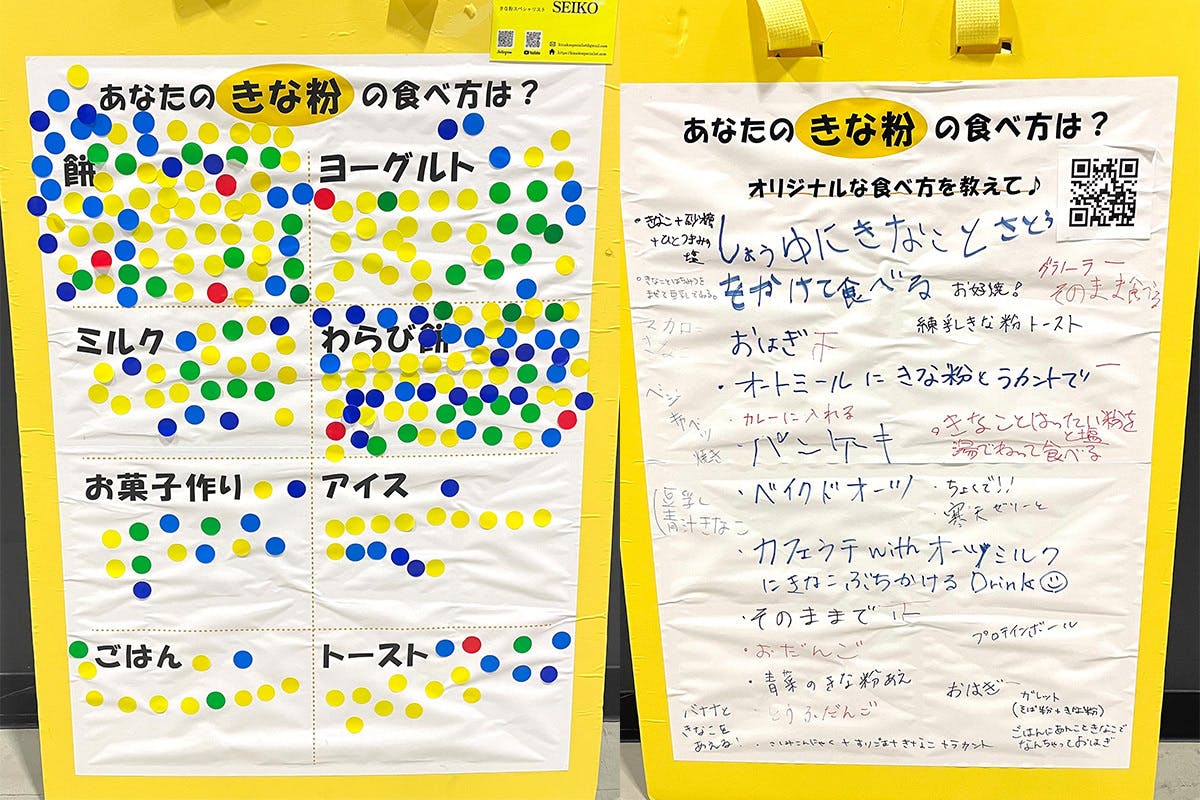 きな粉スペシャリスト SEIKO
あなたの きな粉 の食べ方は？
餅
ヨーグルト
ミルク
わらび餅
お菓子作り
アイス
ごはん
トースト
あなたの きな粉 の食べ方は？
オリジナルな食べ方を教えて♪
・きなこ＋砂糖
＋ひとつまみの
塩
しょうゆにきなことさとう
をかけて食べる
お好焼！
グラノーラー
そのまま食べる
練乳きな粉トースト
おはぎ
・オートミールにきな粉とラカントで
・カレーに入れる
キャベツ
焼き
・パンケーキ
。きなことはったい粉を
と塩
湯でねって食べる
・ベイクドオーツ
・ちょくで！！
・寒天ゼリーと
豆乳し
青汁きなこ
・カフェラテ withオーツミルク
にきなこぶちかけるDrink☺
・そのままで
プロテインボール
・おだんご
・青菜のきな粉あえ
おはぎ
・とうふだんご
バナナと
きなこを
あえる！
ガレット
(そば粉＋きな粉)
ごはんにあんこときなこで
なんちゃっておはぎ